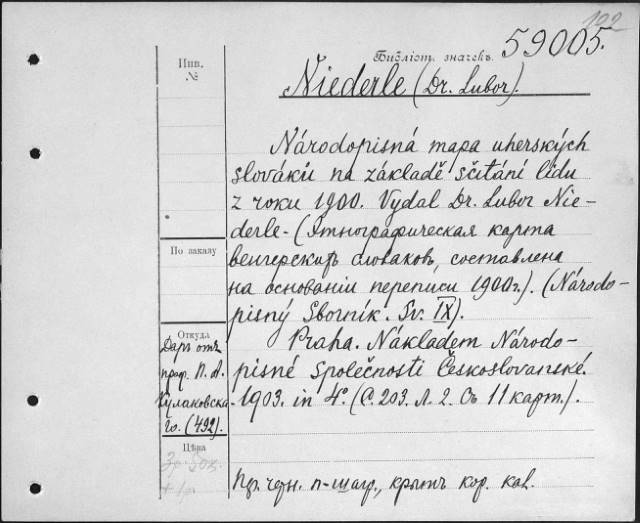 122
Инв.
№
Библіот. значекъ.
59005.
Niederle (Dr. Lubor).
Národopisná mapa uherských
slováků na základě sčítání lidu
z roku 1900. Vydal Dr. Lubor Nie-
derle - (Этнографическая карта
венгерскихъ словаковъ, составлена
на основаніи переписи 1900 г.). (Národo-
pisný Sborník. Sv. IX).
Praha. Nákladem Národo-
pisné Společnosti Českoslovanské.
1903. in 4°. (С. 203. Л. 2. Съ 11 карт.).
Пр. черн. п-шагр., крытъ кор. кол.
По заказу
Откуда
Даръ отъ
проф. П. А.
Кулаковска-
го. (492).
Цѣна